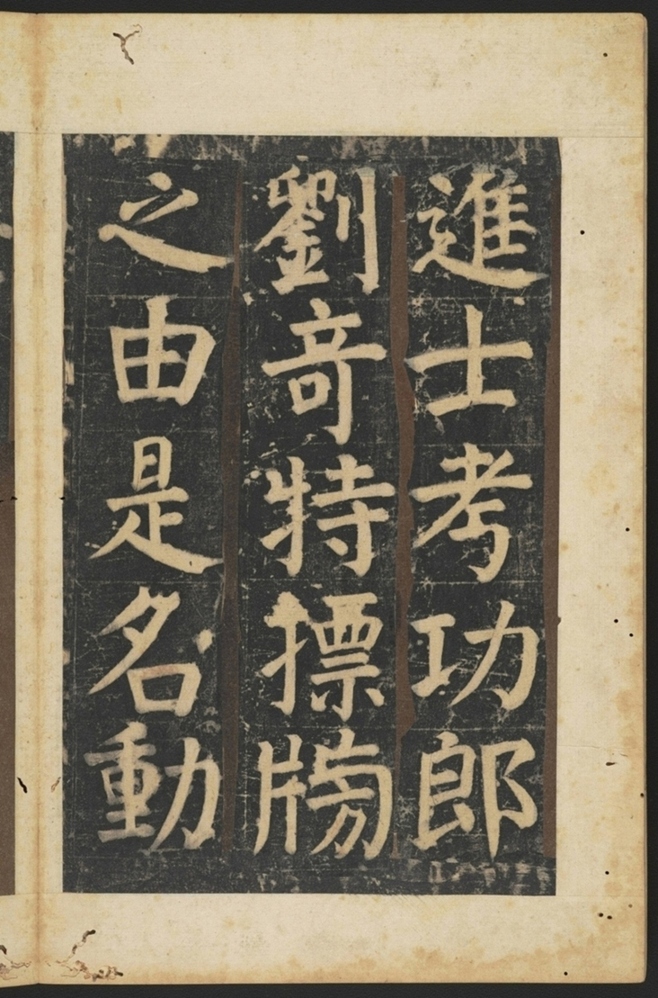 進士考功郎
劉竒特摽牓
之由是名動